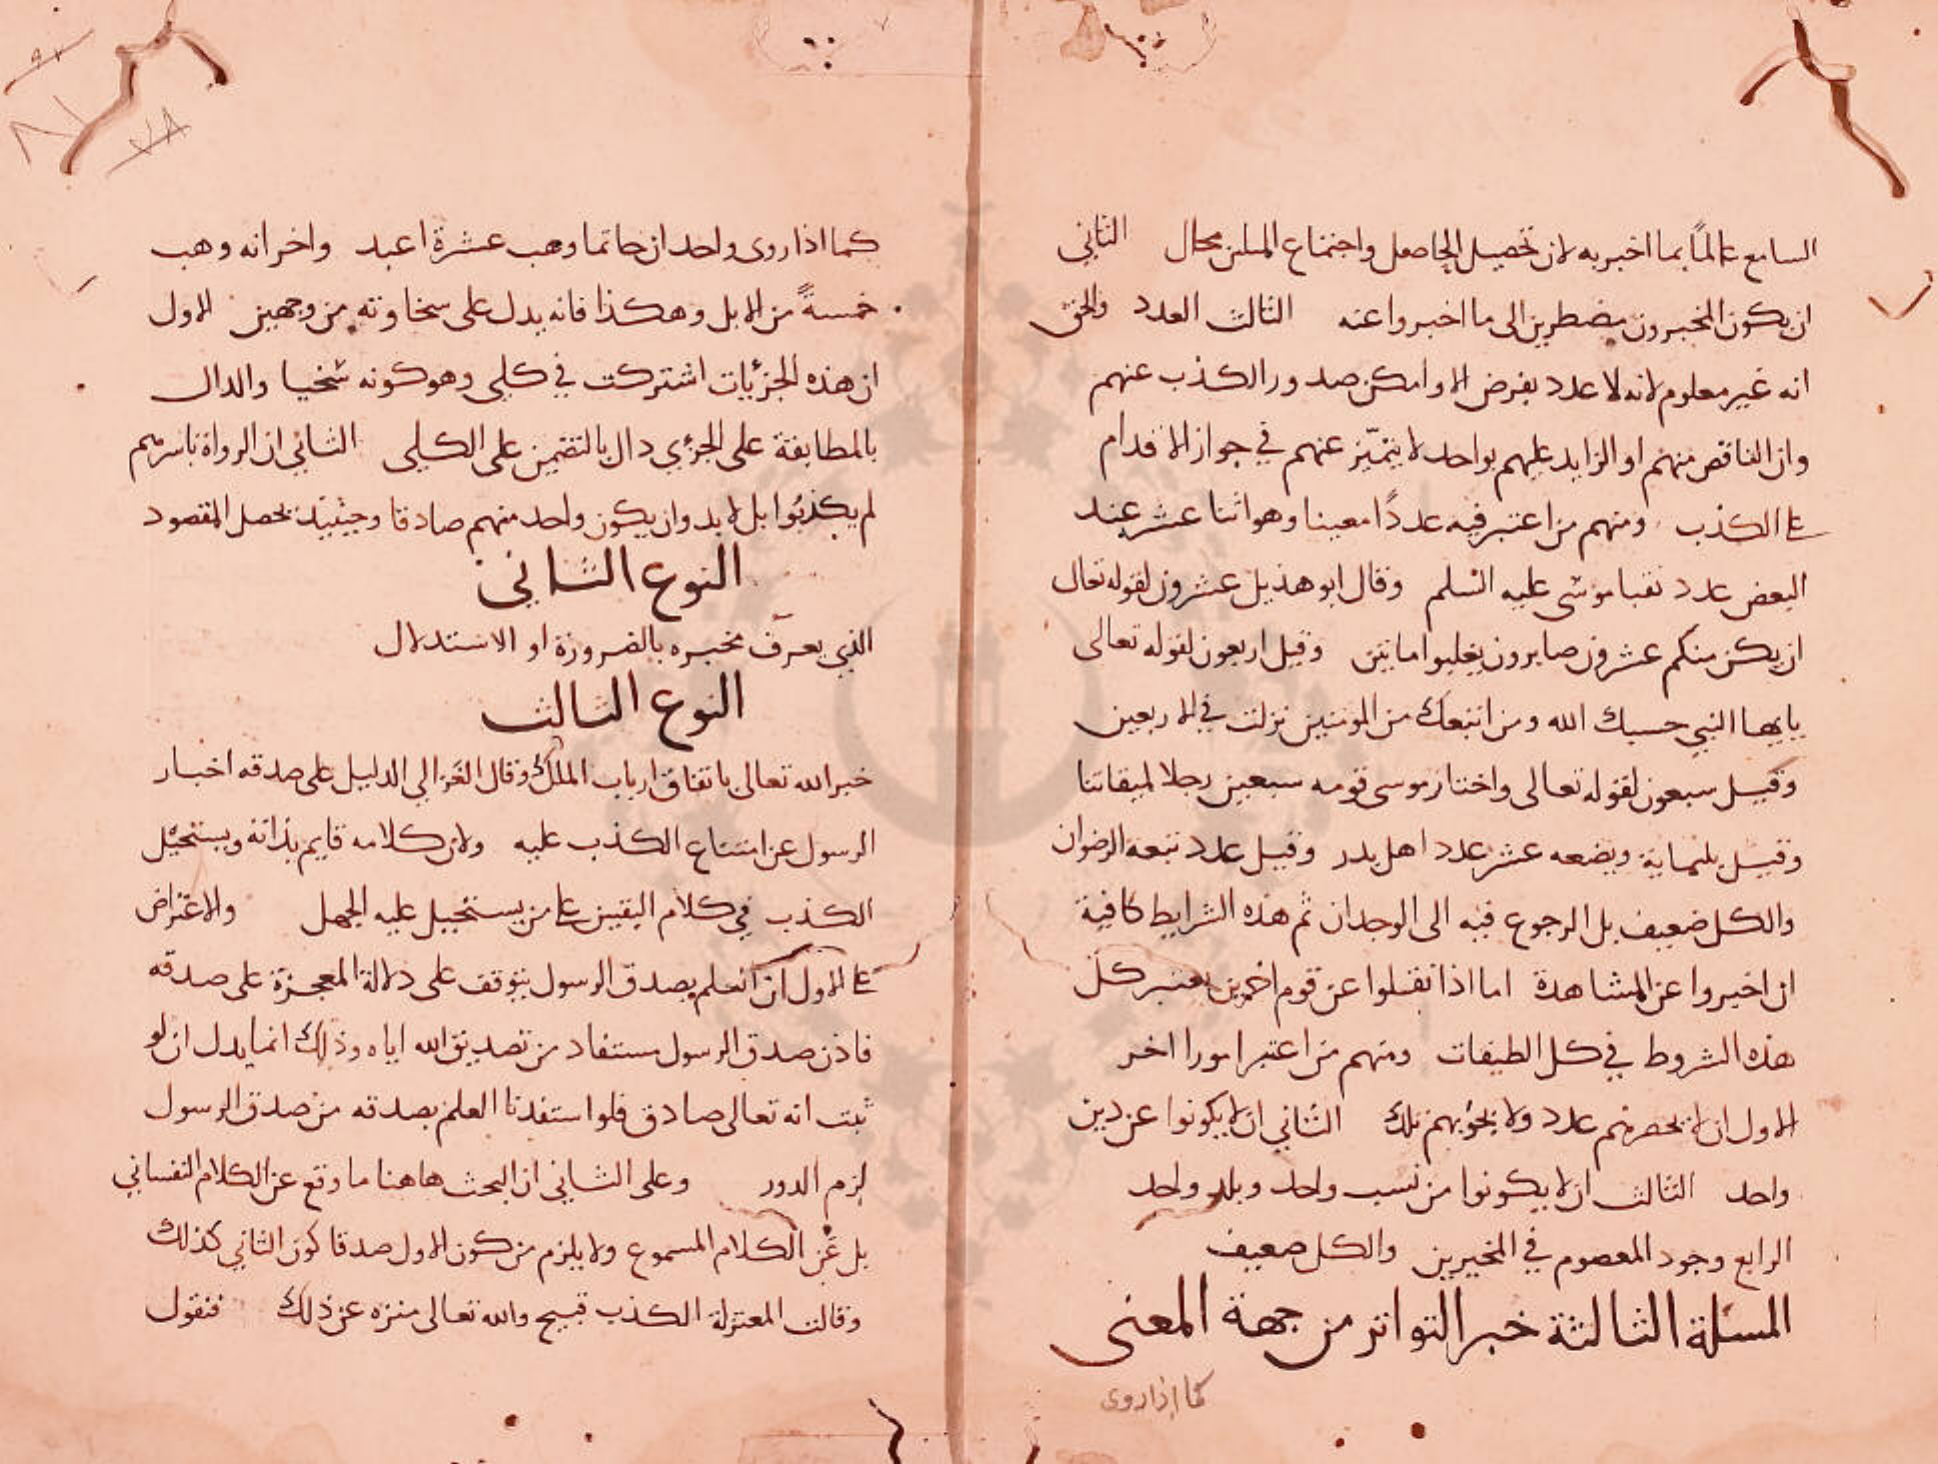 السامع عالماً بما اخبر به لان تحصيل الحاصل واجتماع المثلين محال الثاني
ان يكون المخبرون مضطرين الى ما اخبروا عنه الثالث العدد والحق
انه غير معلوم لانه لا عدد يفرض الا وامكن صدور الكذب عنهم
وان الناقص منهم او الزايد عليهم بواحد لا يتميّز عنهم في جواز الاقدام
على الكذب ومنهم من اعتبر فيه عدداً معينا وهو اثنا عشر عند
البعض عدد نقبا موسى عليه السلم وقال ابو هذيل عشرون لقوله تعالى
ان يكن منكم عشرون صابرون يغلبوا مايتين وقيل اربعون لقوله تعالى
يايها النبي حسبك الله ومن اتبعك من المومنين نزلت في الاربعين
وقيل سبعون لقوله تعالى واختار موسى قومه سبعين رجلا لميقاتنا
وقيل ثلثماية وبضعه عشر عدد اهل بدر وقيل عدد بيعه الرضوان
والكل ضعيف بل الرجوع فيه الى الوجدان ثم هذه الشرايط كافية
ان اخبروا عن المشاهدة اما اذا نقلوا عن قوم اخرين يعتبر كل
هذه الشروط في كل الطبقات ومنهم من اعتبر امورا اخر
الاول ان لا يحصرهم عدد ولا يحويهم بلد الثاني ان لا يكونوا عن دين
واحد الثالث ان لا يكونوا من نسب واحد وبلد واحد
الرابع وجود المعصوم في المخبرين والكل ضعيف
المسئلة الثالثة خبر التواتر من جهة المعنى
كما اذا روى
كما اذا روى واحد ان حاتما وهب عشرة اعبد واخر انه وهب
خمسةً من الابل وهكذا فانه يدل على سخاوته من وجهين الاول
ان هذه الجزئيات اشتركت في كلي وهو كونه سخيا والدال
بالمطابقة على الجزئي دال بالتضمن على الكلي الثاني ان الرواة باسرهم
لم يكذبوا بل لا بد وان يكون واحد منهم صادقا وحينيذ يحصل المقصود
النوع الثاني
الذي يعرف مخبره بالضرورة او الاستدلال
النوع الثالث
خبر الله تعالى باتفاق ارباب الملل وقال الغزالي الدليل على صدقه اخبار
الرسول عن امتناع الكذب عليه ولان كلامه قايم بذاته ويستحيل
الكذب في كلام اليقين على من يستحيل عليه الجهل والاعتراض
على الاول ان العلم بصدق الرسول يتوقف على دلالة المعجزة على صدقه
فاذن صدق الرسول مستفاد من تصديق الله اياه وذلك انما يدل ان لو
ثبت انه تعالى صادق فلو استفدنا العلم بصدقه من صدق الرسول
لزم الدور وعلى الثاني ان البحث هاهنا ما وقع عن الكلام النفساني
بل عن الكلام المسموع ولا يلزم من كون الاول صدقا كون الثاني كذلك
وقالت المعتزلة الكذب قبيح والله تعالى منزه عن ذلك فنقول